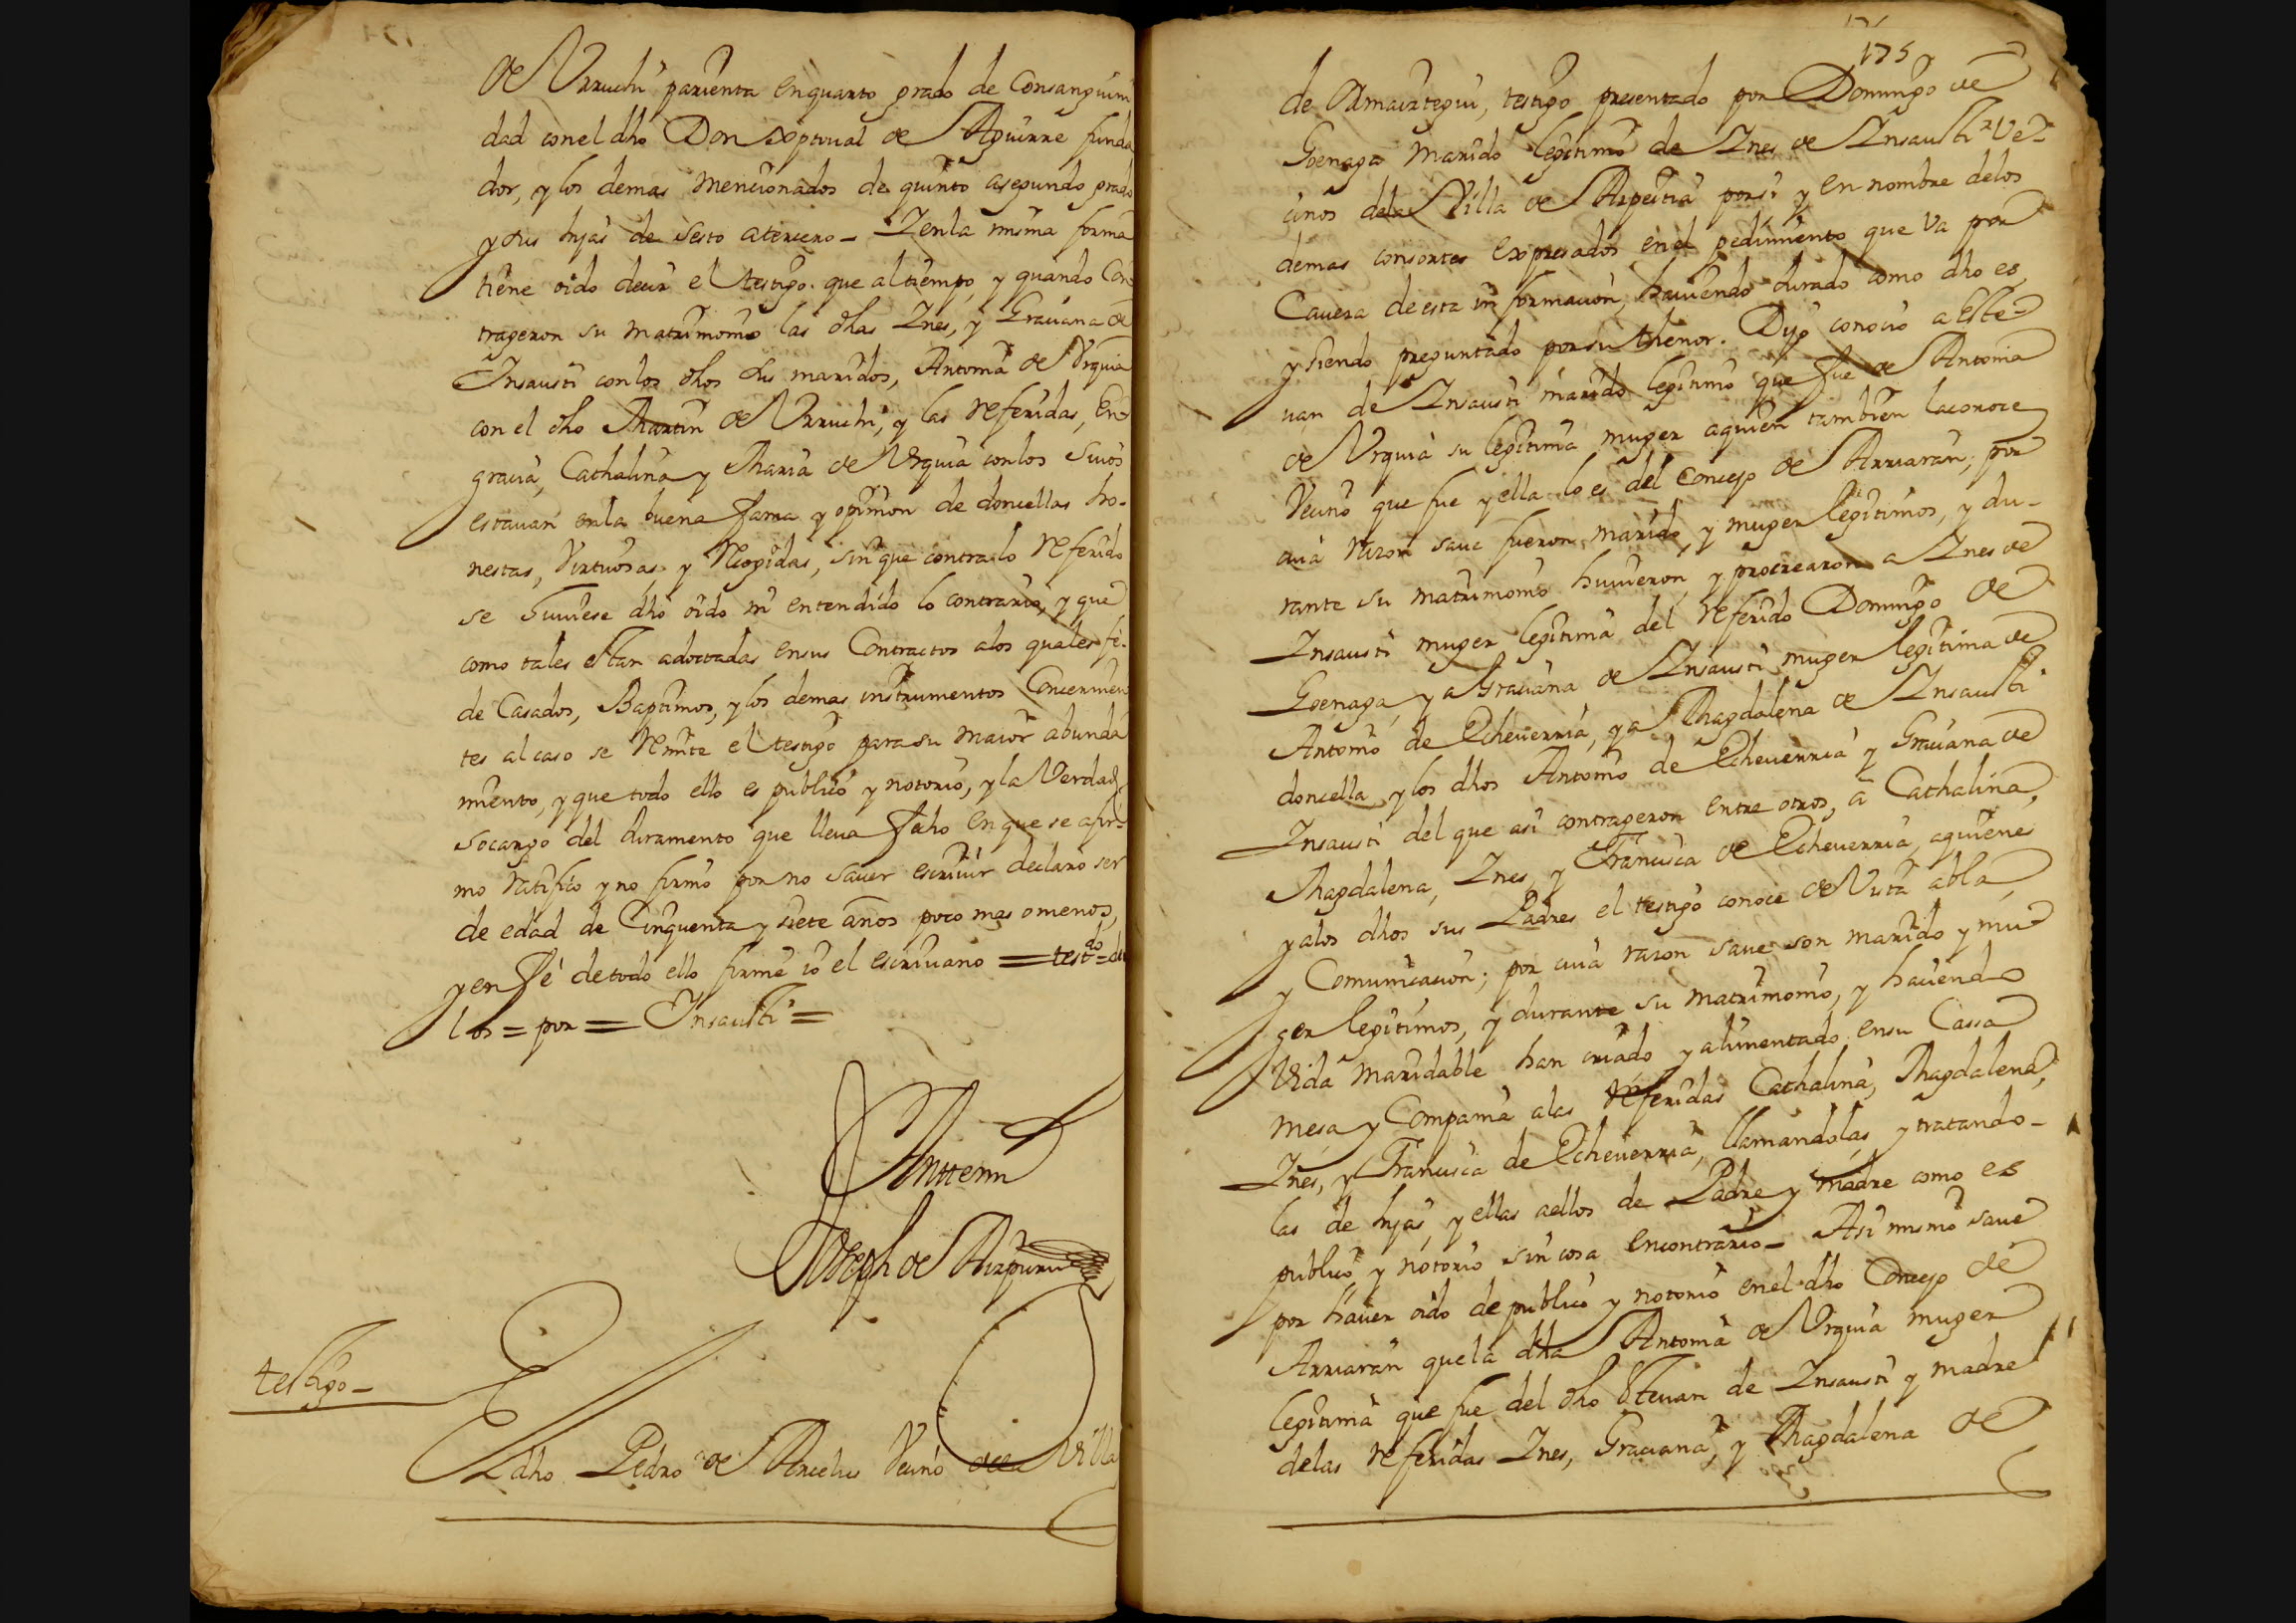 de Urruchi parienta en quarto grado de Consanguini
dad con el dho Don xptoual de Aguirre funda
dor, y los demas mencionados de quinto a segundo grado
y sus hijas de sesto a tercero – I en la misma forma
tiene oido decir el testigo que al tiempo, y quando Con
trageron su matrimonio las dhas Ines, y Graciana de
Insausti con los dhos sus maridos, Antonia de Vrquia
con el dho Martin de Urruchi, y las referidas, En
gracia, Cathalina y Maria de Vrquia con los suios
estauan en la buena fama y opinion de doncellas ho-
nestas, Virtuosas y Recogidas, sin que contra lo referido
se huuiese dho oido ni entendido lo contrario, y que
como tales estan adoctadas en sus Contractos a los quales fe
de Casados, Baptismos, y los demas instrumentos Concernien
tes al caso se remite el testigo para su maior abunda
miento, y que todo ello es publico y notorio, y la Verdad
so cargo del Juramento que lleua fecho en que se afir-
mo ratifico y no firmo por no sauer escriuir declaro ser
de edad de Cinquenta y siete años poco mas o menos,
y en Fé de todo ello firmé io el escriuano = testdo =
los = por = Insausti =
Antte mi
Joseph de Aizpuru
testigo –
El dho Pedro de Arcelus Vecino de la Villa
175
de Amasztegui, testigo presentado por Domingo de
Goenaga marido legitimo de Ines de Insausti Ve-
cinos de la Villa de Azpeitia por si y en nombre de los
demas consortes expresados en el pedimiento que va por
Cauera de esta informacion, hauiendo Jurado como dho es,
y siendo preguntado por su thenor. Dijo conocio a Este-
uan de Insausti marido legitimo que fue de Antonia
de Vrquia su legitima muger a quien tambien la conoce
Vecino que fue y ella lo es del Concejo de Arriaran, por
cuia razon saue fueron marido, y muger legitimos, y du-
rante su matrimonio huuieron, y procrearon a Ines de
Insausti muger legitima del referido Domingo de
Goenaga, y a Graciana de Insausti muger legitima de
Antonio de Echeuerria, y a Magdalena de Insausti
doncella y los dhos Antonio de Echeuerria y Graciana de
Insausti del que asi contrageron entre otros, a Cathalina,
Magdalena, Ines, y Francisca de Echeuerria, a quienes
y a los dhos sus Padres el testigo conoce de Vista abla,
y Comunicacion; por cuia razon saue son marido y mu-
ger legitimos, y durante su matrimonio, y haciendo
Vida maridable han criado y alimentado en su Cassa
mesa y Compania a las referidas Cathalina, Magdalena,
Ines, y Francisca de Echeuerria, llamandolas, y tratando-
las de hijas, y ellas a ellos de Padre y madre como es
publico y notorio sin cosa en contrario – Asi mismo saue
por hauer oido de publico y notorio en el dho Concejo de
Arriaran que la dha Antonia de Vrquia muger
legitima que fue del dho Esteuan de Insausti y madre
de las referidas Ines, Graciana, y Magdalena de